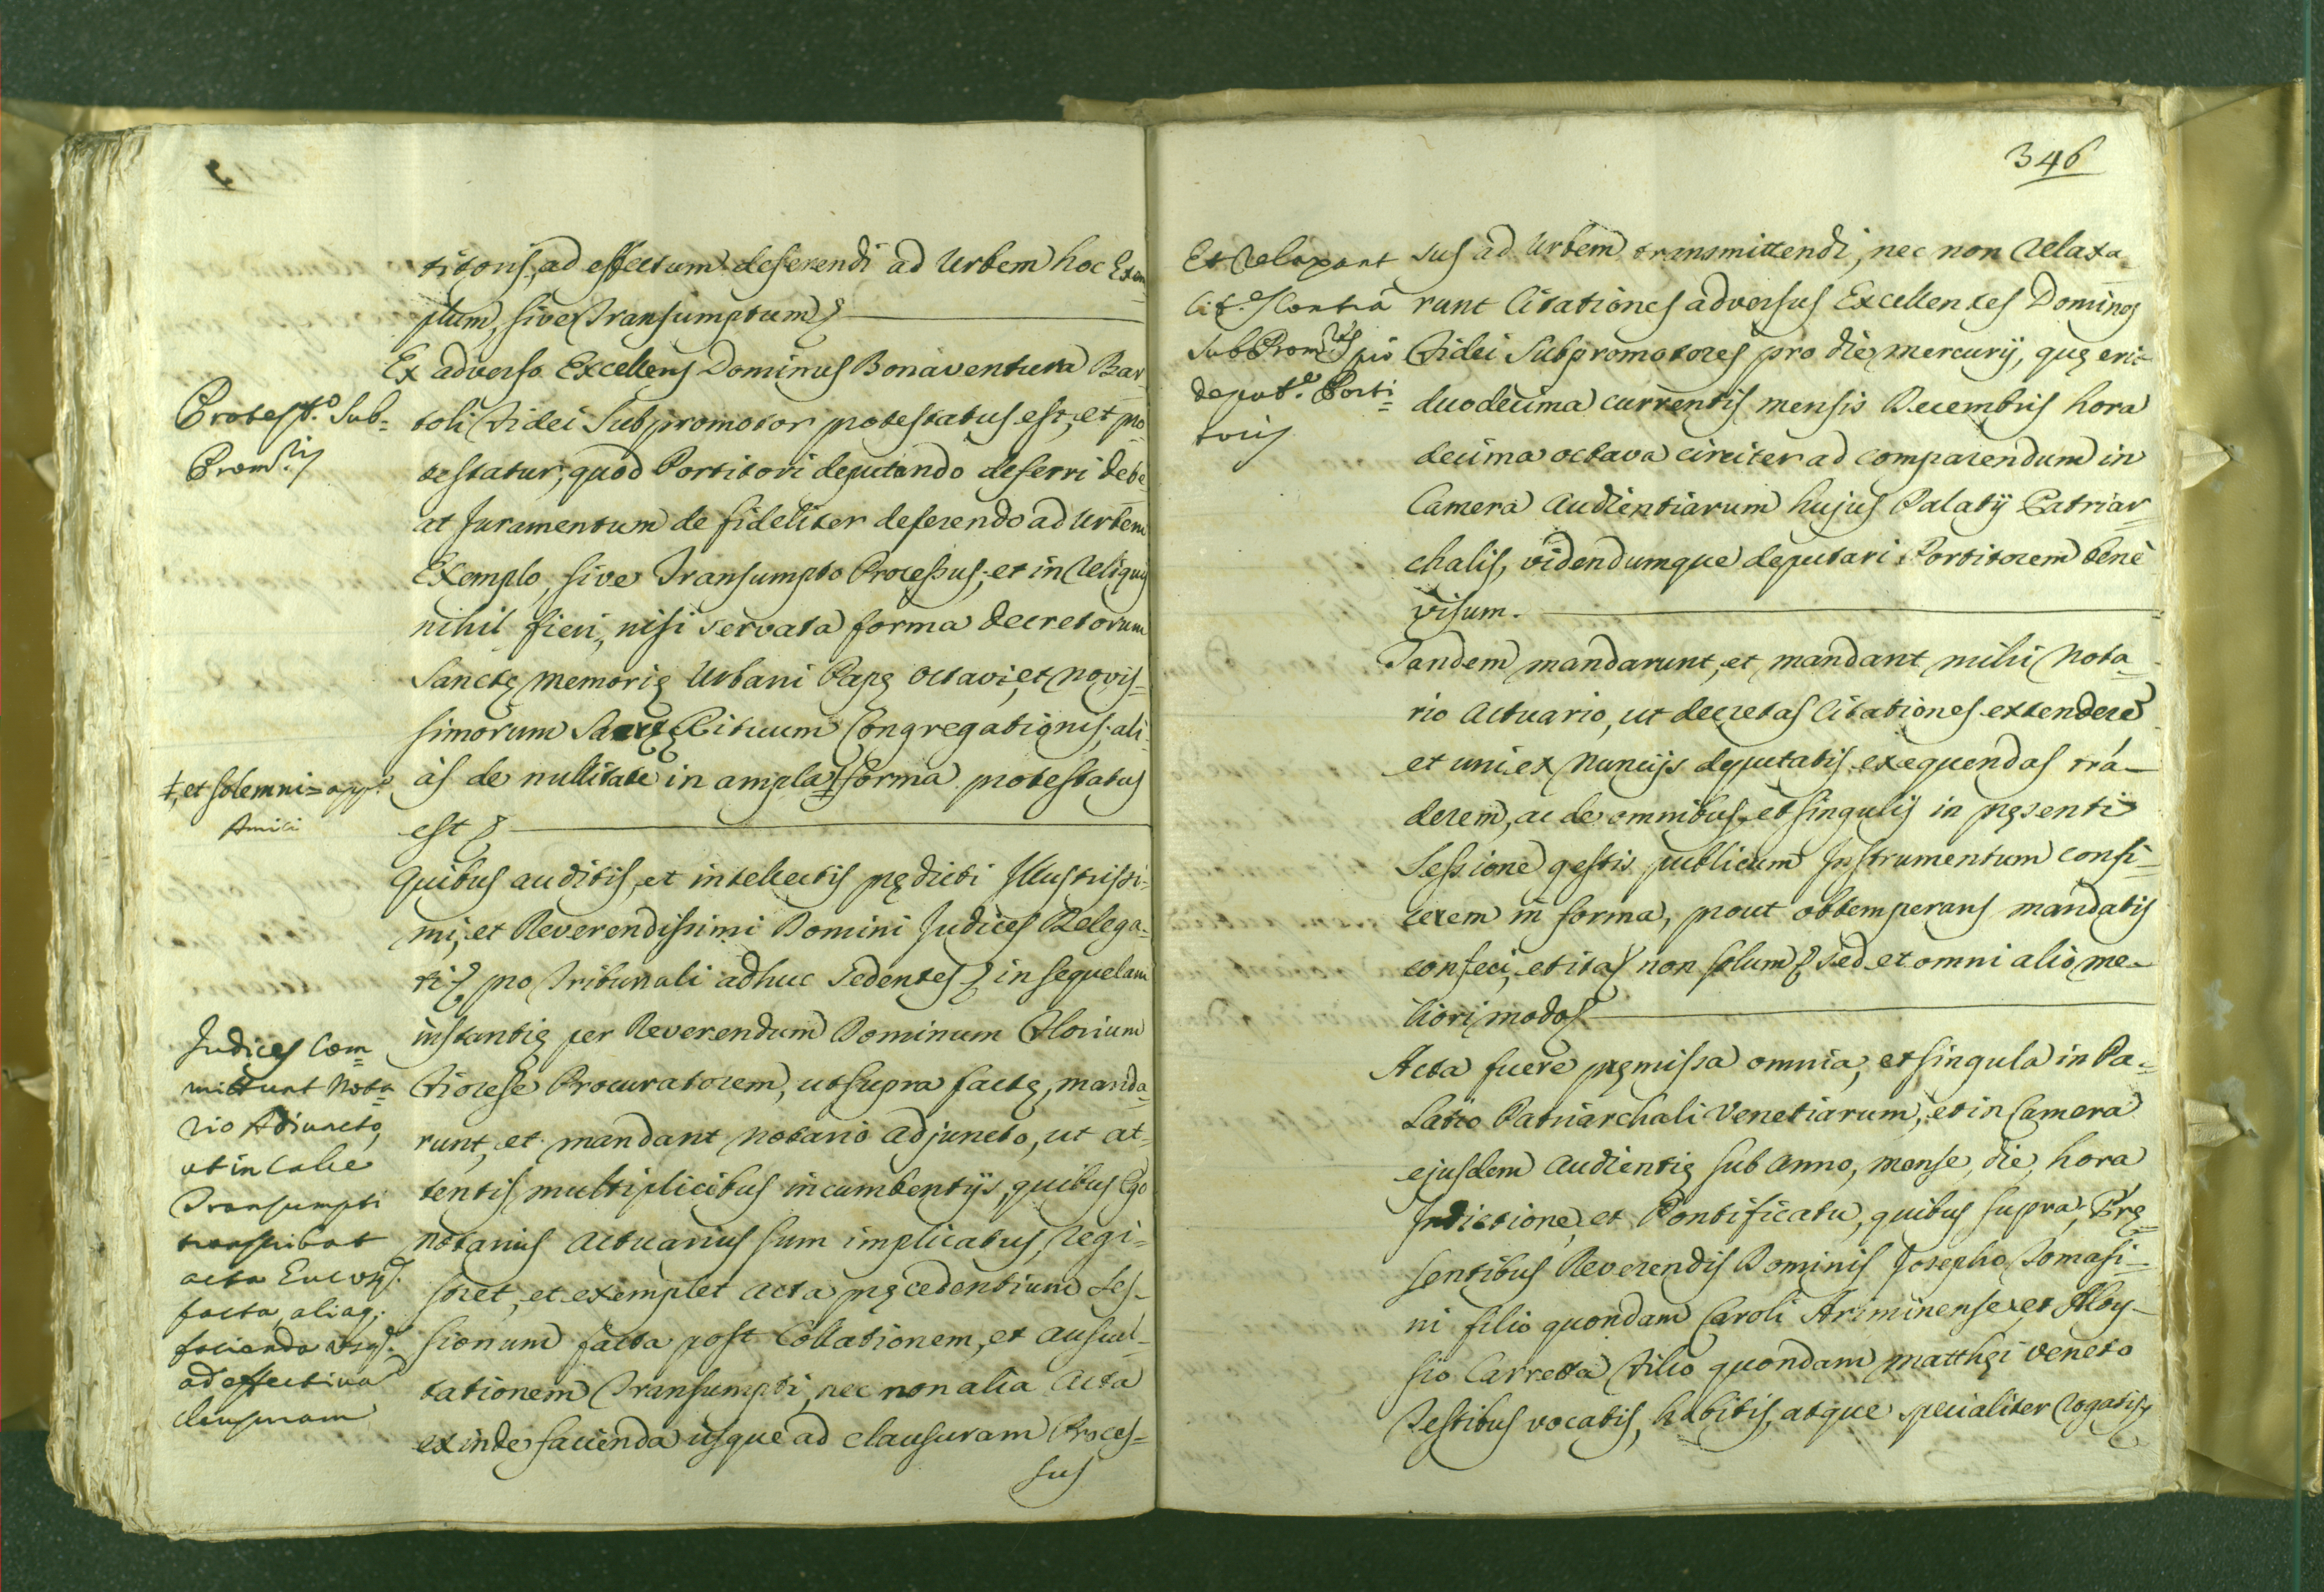 titoris, ad effectum deferendi ad Urbem hoc Exem=
plum, sive Transumptum
Ex adverso Excellens Dominus Bonaventura Bar=
Protest.º Sub=
Prom.ris
toli Fidei Subpromotor protestatus est, et pro=
testatur, quod Portitori deputando deferri debe=
at Juramentum de fideliter deferendo ad Urbem
Exemplo, sive Transumpto Processus; et in reliquis
nihil fieri, nisi servata forma decretorum
Sanctę memorię Urbani Papę Octavi, et novis=
simorum Sacrę Rituum Congregationis; ali=
‡, et solemni=
às de nullitate in ampla ‡ forma protestatus
est
Quibus auditis, et intellectis pędicti Illustrissi=
mi, et Reverendissimi Domini Judices Delega=
ti pro Tribunali adhuc Sedentes in sequelam
instantię per Reverendum Dominum Florium
Judices Com=
mittunt Nota=
rio Adiuncto,
ut in Calce
Transumpti
transcribat
acta
facta, aliaq;
facienda usq;
ad effectivã
clausuram
Fiorese Procuratorem, ut supra factę, manda=
runt, et mandant Notario adjuncto, ut at=
tentis multiplicibus incumbentijs, quibus Ego
Notarius Actuarius sum implicatus, regi=
stret, et exemplet acta pręcedentium Ses=
sionum facta post Collationem, et auscul=
tationem Transumpti, nec non alia Acta
exinde facienda usque ad clausuram Proces=
sus
346
Et relaxant
Cit.es Contrà
SubProm.res pro
deput.e Porti=
toris
sus ad Urbem transmittendi, nec non relaxa=
runt Citationes adversus Excellentes Dominos
Fidei Subpromotores pro die Mercurij, quę erit
duodecima currentis mensis Decembris hora
decima octava circiter ad comparendum in
Camera Audientiarum hujus Palatij Patriar=
chalis, videndumque deputari Portitorem benè
visum.
Tandem mandarunt, et mandant mihi Nota=
rio Actuario, ut decretas Citationes extenderè
et uni ex Nuncijs deputatis exequendas trá=
derem, ac de omnibus, et singulis in pręsenti
Sessione gestis publicum Instrumentum confi=
cerem in forma, prout obtemperans mandatis
confeci, et ita non solum sed et omni alio me=
liori modo
Acta fuere pręmissa omnia, et singula in Pa=
latio Patriarchali Venetiarum, et in Camera
ejusdem Audientię sub Anno, mense, die, hora
Indictione, et Pontificatu, quibus supra; Prę=
sentibus Reverendis Dominis Josepho Tomasi=
ni filio quondam Caroli Ariminense, et Aloy=
sio Carretta Filio quondam Matthęi Veneto
Testibus vocatis, habitis, atque specialiter rogatis